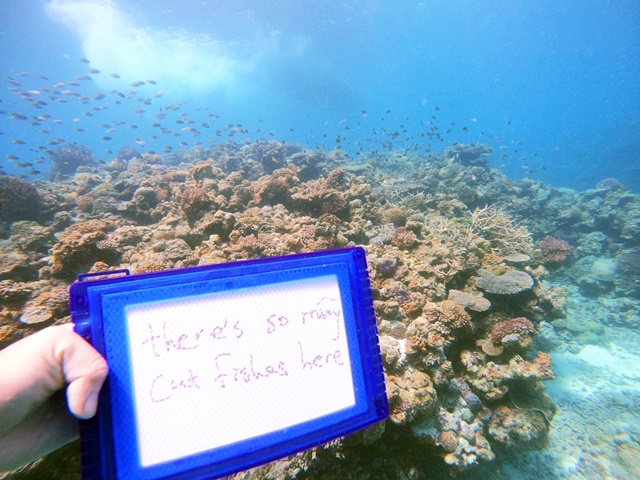 there's so many
cut fishes here